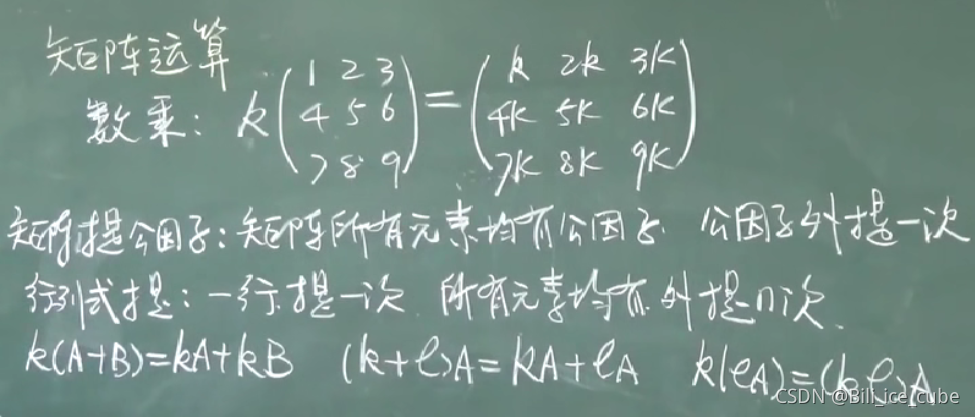 矩阵运算
数乘: k(1 2 3 = (k 2k 3k
4 5 6 4k 5k 6k
7 8 9) 7k 8k 9k)
矩阵提公因子:矩阵所有元素均有公因子. 公因子外提一次
行列式提:一行提一次 所有元素均有.外提n次.
k(A+B)=kA+kB (k+l)A=kA+lA k(lA)=(kl)A
CSDN @Bili_ice_cube